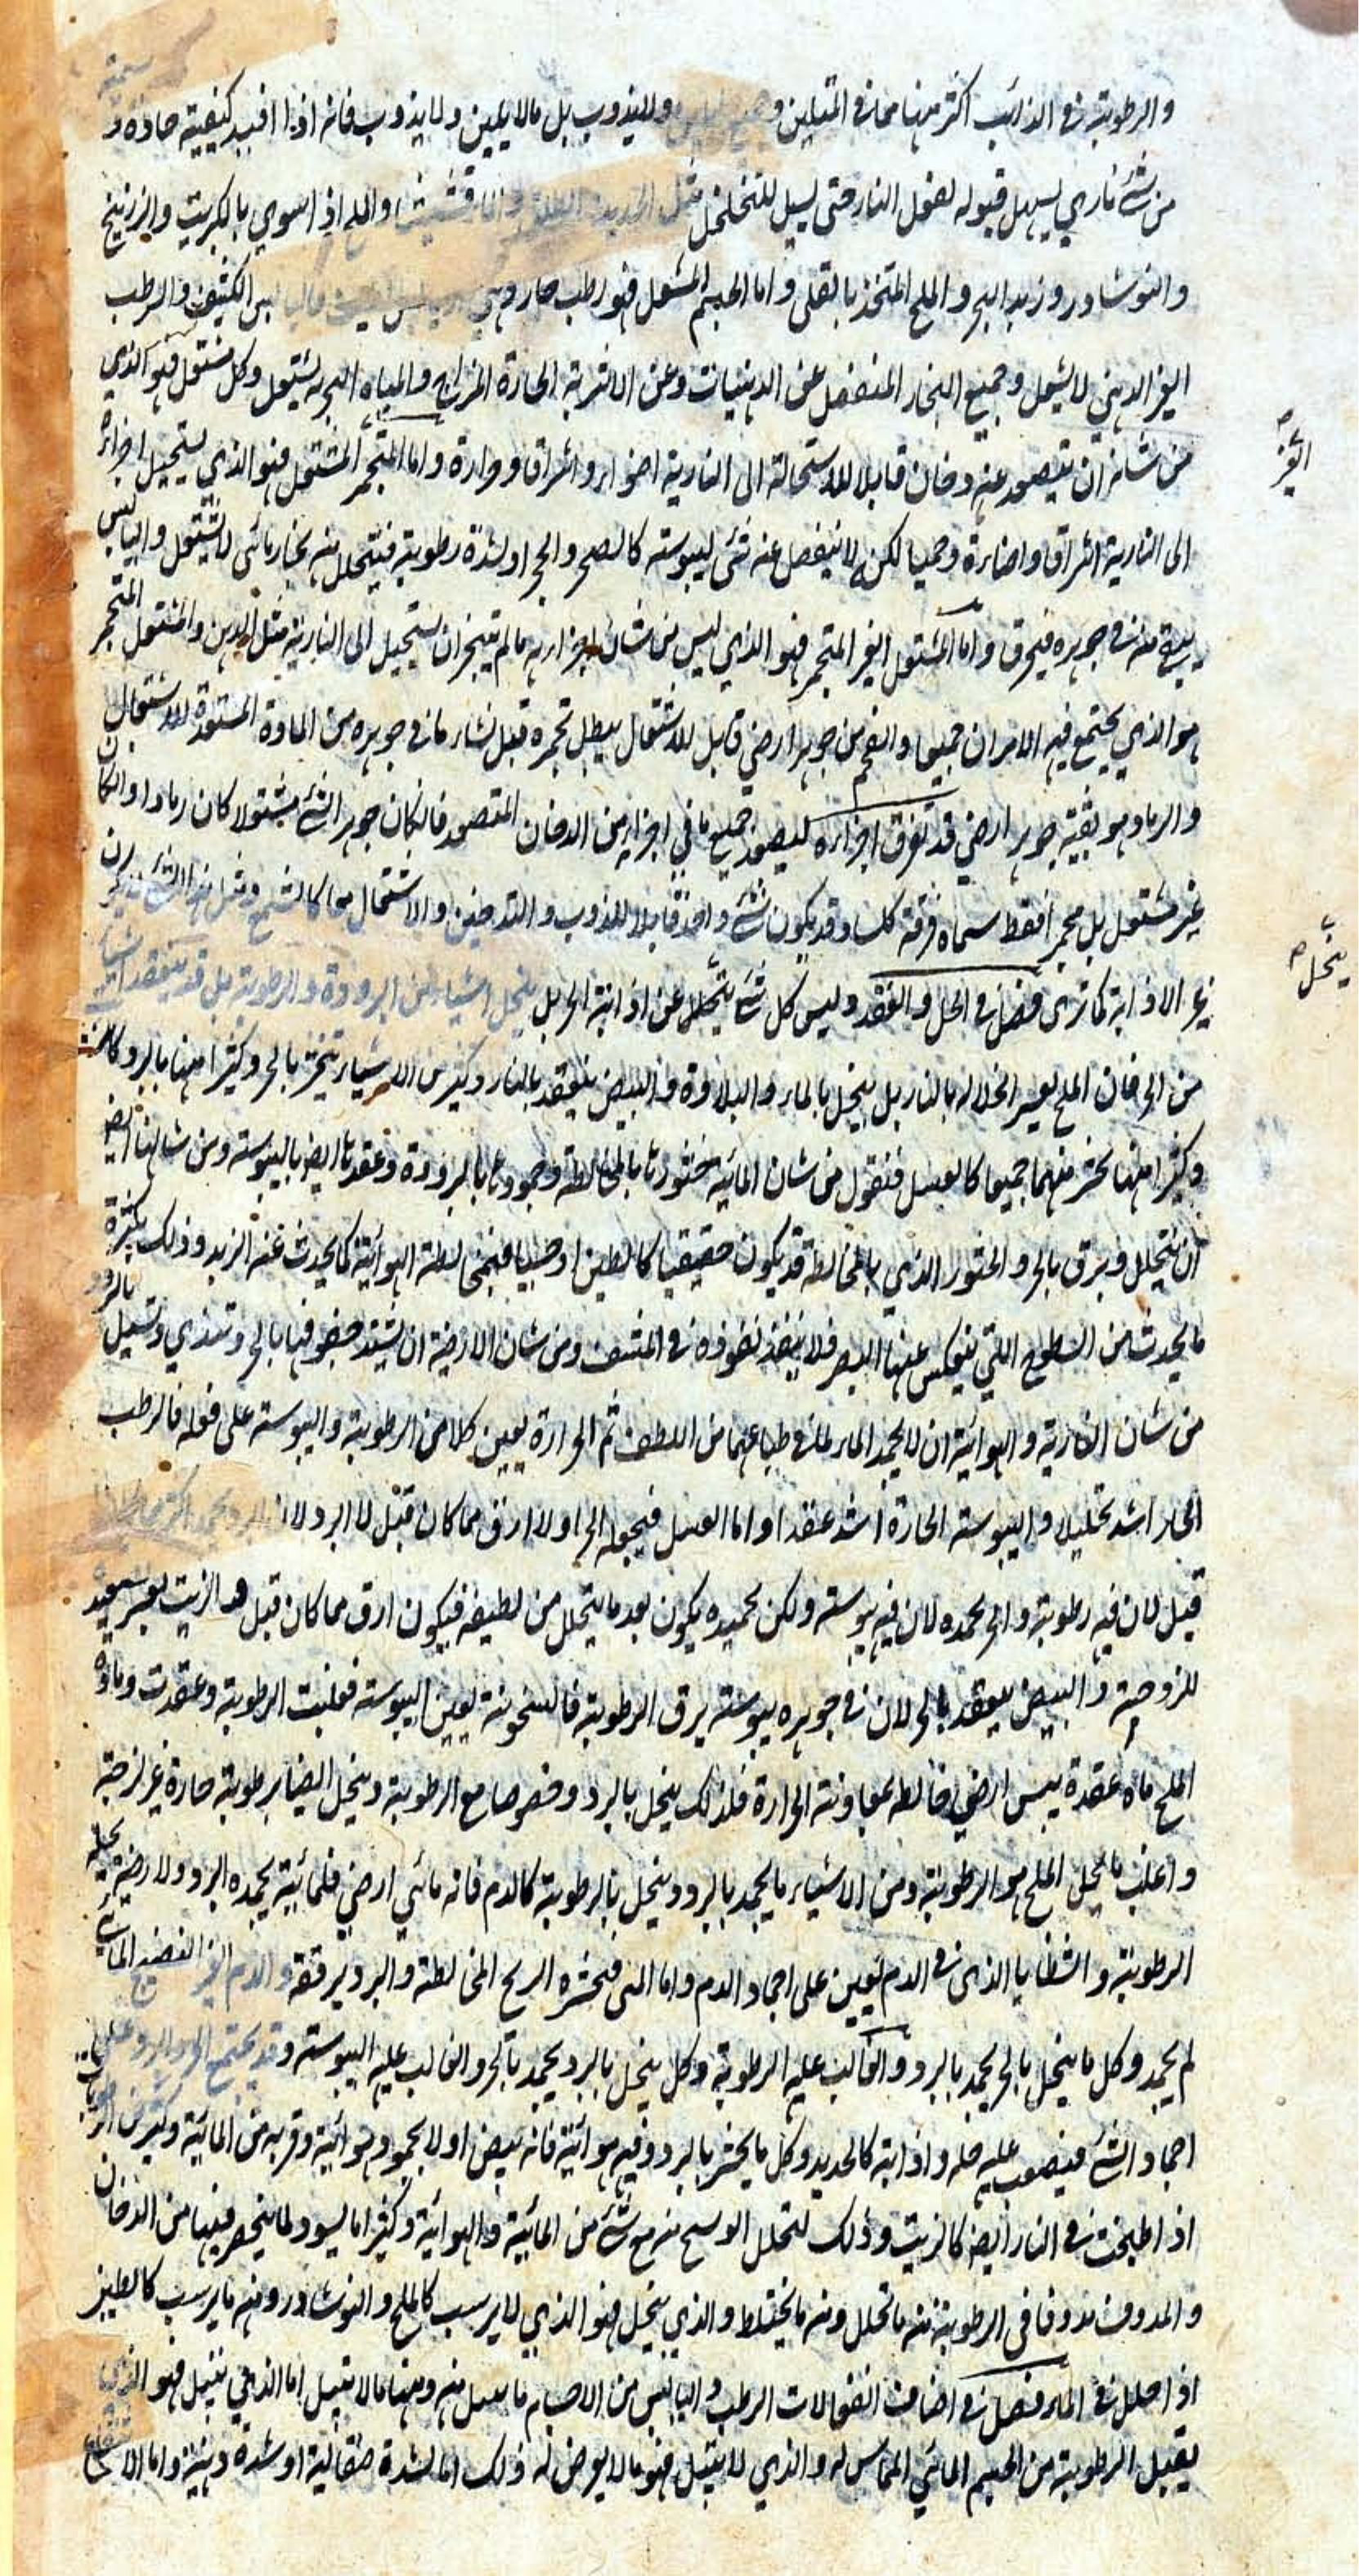 والرطوبة في الذائب اكثر منها مما في المتلين و ولا يذوب بل مالا يلين ولا يذوب فانه اذا افيد كيفية حادة
من شئ ناري يسهل قبوله لفعل النار حتى يسيل للتخلخل مثل الحديد والطلق والمارقشيثا والملح اذا سوي بالكبريت والزرنيخ
والنوشادر وزبد البحر والملح المتخذ بالقلي واما الجسم المشتعل فهو رطب حار الكثيف والرطب
الغير الدهني لا يشتعل وجميع البخار المنفصل عن الدهنيات وعن الاشربة الحارة المزاج والمياه البحرية يشتعل وكل مشتعل فهو الذي
من شانه ان يتصعد عنه دخان قابلا للاستحالة الى النارية اضواء واشراق وحرارة واما المتجمر الغير المشتعل فهو الذي يستحيل اجزاؤه
الى النارية اشراق واضاءة وحميا لكن لا ينفصل عنه شئ ليبوسته كالصخر والحجر او لشدة رطوبته فيتحلل منه بخار مائي لا يشتعل واليابس
يبقى منه في جوهره فيحرق واما المشتعل الغير المتجمر فهو الذي ليس من شان اجزائه ما لم يتبخر ان يستحيل الى النارية مثل الدهن والمشتعل المتجمر
هو الذي يجتمع فيه الامران جميعا والفحم من جوهر ارضي قابل للاشتعال يبطل تجمره قبل فناء ما في جوهره من المادة المستعدة للاشتعال
والرماد هو بقية جوهر ارضي قد تفرق اجزاؤه لتصعد جميع ما في اجزائه من الدخان المتصعد فان كان جوهر الشئ مشتعلا كان رمادا وان كان
غير مشتعل بل متجمرا فقط سماه فرقة كلسا وقد يكون شئ واحد قابلا للذوب والتدخين والاشتعال معا كالشمع ومثل هذا الشئ
غير الاذابة كما ترى فصل في الحل والعقد وليس كل شئ يتحلل عن اذابة الحر بل ينحل اشياء من البرودة والرطوبة بل قد ينعقد اشياء
من الحر فان الملح يعسر انحلاله بالنار بل ينحل بالماء والبلاوة والبيض ينعقد بالنار وكثير من الاشياء يخثر بالحر وكثير منها بالبرد كالمني
وكثير منها يخثر منهما جميعا كالعسل فنقول من شان المائية خثورتها بالمخالطة وجمودها بالبرودة وعقدها ايض باليبوسة ومن شانها ايض
ان يتحلل ويرق بالحر والخثور الذي بالمخالطة قد يكون حقيقيا كالطين او حسيا فبمخالطة الهوائية كما يحدث عنه الزبد وذلك بكثرة
ما يحدث من السطوح التي ينعكس عنها البصر فلا ينفذ نفوذه في المشف ومن شان الارضية ان يشتد جفوفها بالحر وتتندى وتسيل بالبرد
من شان النارية والهوائية ان لا يجمد الماء لما في طباعهما من اللطف ثم الحرارة يعين كلا من الرطوبة واليبوسة على فعله فالرطب
الحار اشد تحليلا واليبوسة الحارة اشد عقدا واما العسل فيجعله الحر اولا ارق مما كان قبل لا البرد لان البرد يجمد اكثر
قبل لان فيه رطوبة والحر يجمده لان فيه يبوسة ولكن تجميده يكون بعد ما يتحلل من لطيفه فيكون ارق مما كان قبل والزيت يعسر تجميد
للزوجية والبيض ينعقد بالحر لان في جوهره يبوسة يرق الرطوبة فالسخونة يعين اليبوسة فغلبت الرطوبة وعقدت ومادة
الملح ماء عقدة يبس ارضي خالطه بمعاونة الحرارة فلذلك ينحل بالبرد وخصوصا مع الرطوبة وينحل ايضا برطوبة حارة غير لزجة
واغلب ما يحل الملح هو الرطوبة ومن الاشياء ما يجمد بالبرد وينحل بالرطوبة كالدم فانه مائي ارضي فلمائيته يجمده البرد ولارضيته يحلله
الرطوبة والشظايا الذي في الدم يعين على اجماد الدم واما المني فيخثره الريح المخالطة والبرد يرققه والدم الغير النضيج المائي
لم يجمد وكل ما ينحل بالحر يجمد بالبرد والغالب عليه الرطوبة وكل ينحل بالبرد يجمد بالحر والغالب عليه اليبوسة وقد يجتمع الحر والبرد على
اجماد الشئ فيصعب عليه حله واذابته كالحديد وكل ما يخثر بالبرد وفيه هوائية فانه يبيض اولا بجمود هوائية وقربه من المائية وكثير من الرطوبات
اذا طبخت في النار ايض كالزيت وذلك لتحلل الوسخ منه مع شئ من المائية والهوائية وكثيرا ما يسود لما ينحصر فيها من الدخان
والمدوف مدوفا في الرطوبة منه ما تحلل ومنه ما يختلط والذي ينحل فهو الذي لا يرسب كالملح والنوشادر ومنه ما يرسب كالطين
اذا حلل في الماء فصل في اصناف انفعالات الرطب واليابس من الاجسام ما يبتل منه ومنها ما لا يبتل اما الذي يبتل فهو الذي
يقبل الرطوبة من الجسم المائي المماس له والذي لا يبتل فهو ما لا يعرض له ذلك اما لشدة صقالية او شدة دهنية واما الانتقاع
الغير
ينحل